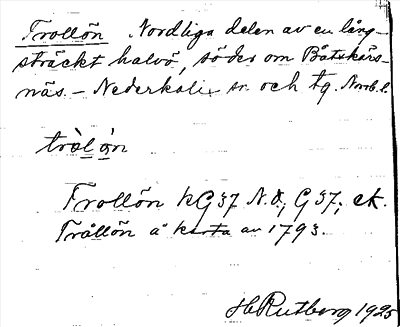 Trollön Nordliga delen av en lång-
sträckt halvö, söder om Båtskärs-
näs. - Nederkalix sn. och tg. Norrb. l.
Trollön kG 37 N.O., G 37; ek.
Trållön å karta av 1793.
H Rutberg 1925